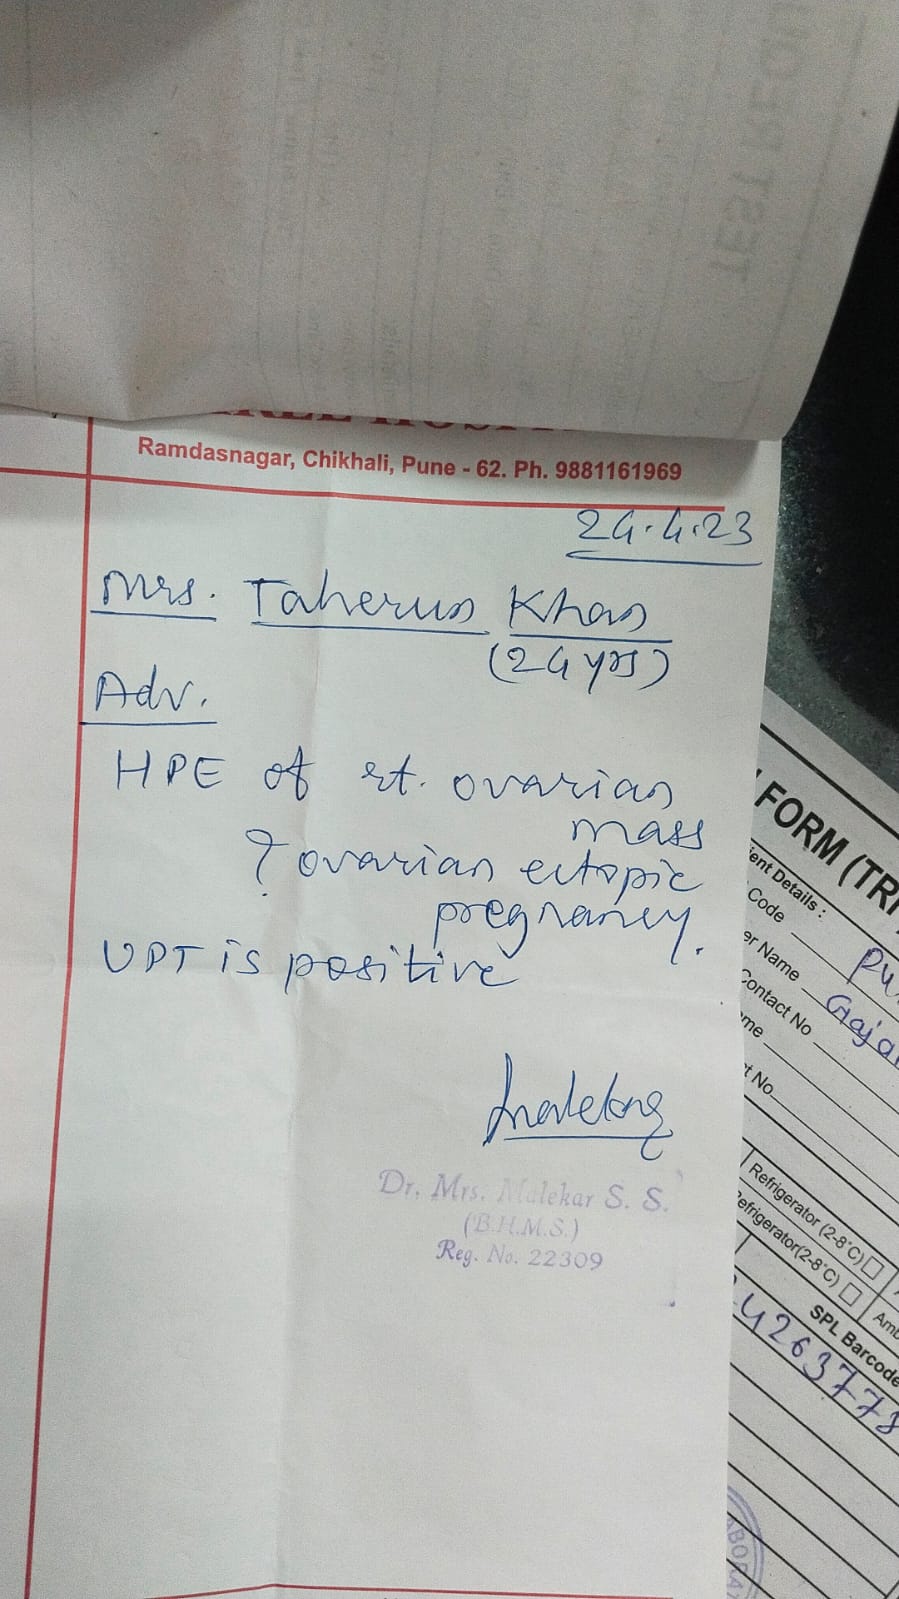 TEST REQU
Ramdasnagar, Chikhali, Pune - 62. Ph. 9881161969
24.4.23
Mrs. Taherun Khan
(24 yrs)
Adv.
HPE of rt. ovarian
mass
? ovarian ectopic
pregnancy.
UPT is positive
Dr. Mrs. Malekar S. S.
(B.H.M.S.)
Reg. No. 22309
FORM (TRF
ient Details :
Code
er Name Gaja
Contact No
me
t No
Refrigerator (2-8°C)
Refrigerator(2-8°C)
Amb
SPL Barcode
4263778
ABORA